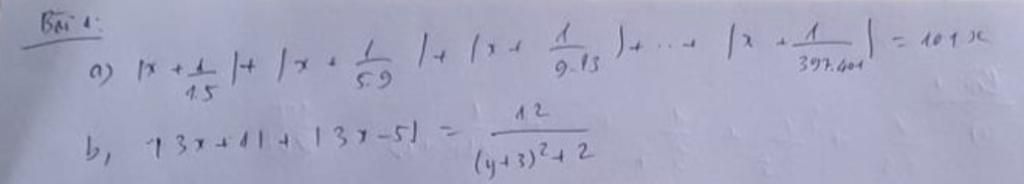 Bài 1:
a) |x + 1/1.5| + |x + 1/5.9| + |x + 1/9.13| + ... + |x + 1/397.401| = 101x
b, |3x+1| + |3x-5| = 12/((y+3)²+2)